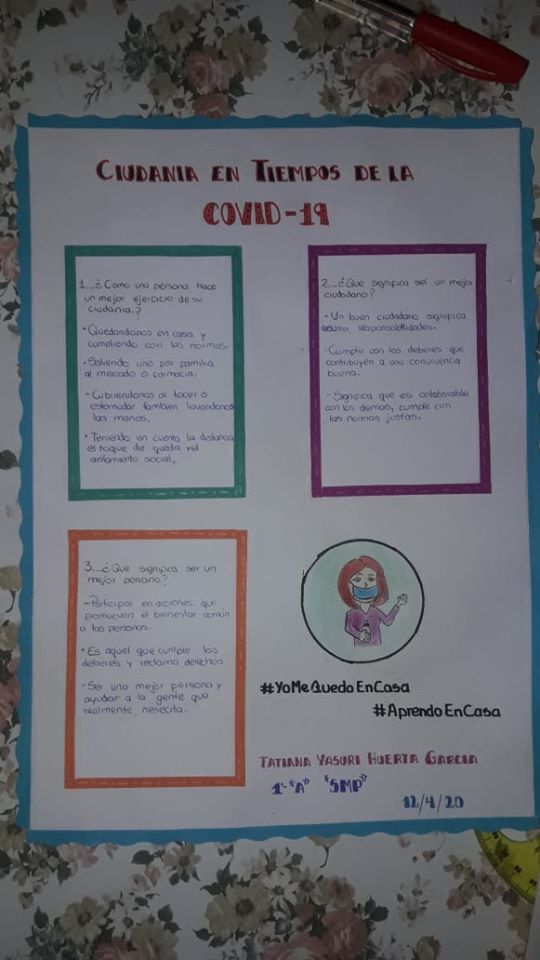 CIUDANIA EN TIEMPOS DE LA
COVID-19
1._¿Como una persona hace
un mejor ejercicio de su
ciudania.?
• Quedandonos en casa y
cumpliendo con las normas.
• Saliendo uno por familia
al mercado o farmacia.
- Cubriendonos al tocer o
estornudar tambien lavandonos
las manos.
• Teniendo en cuenta la distancia
el toque de queda y el
aislamiento social.
2._¿Que significa ser un mejor
ciudadano?
• Un buen ciudadano significa
asumir responsabilidades.
- Cumplir con los deberes que
contribuyen a una convivencia
buena.
- Significa que es colaborable
con los demas, cumple con
las normas justas.
3._¿Que significa ser un
mejor peruano?
- Participar en acciones que
promueven el bienestar común
a las personas.
• Es aquel que cumple los
deberes y reclama derechos.
- Ser una mejor persona y
ayudar a la gente que
realmente, nesecita.
#YoMeQuedoEnCasa
#AprendoEnCasa
TATIANA YASURI HUERTA GARCIA
1- "A" "SMP"
12/4/20